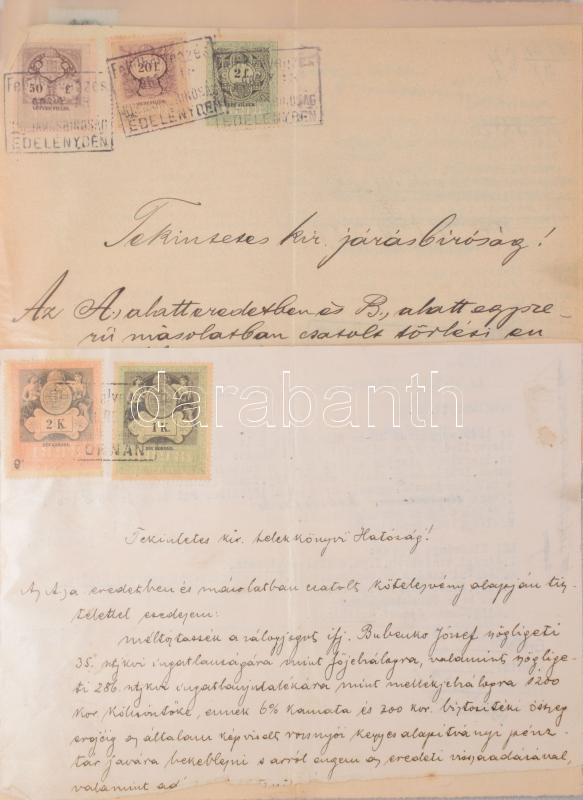 50 f
20 f
2 f
JÁRÁSBIRÓSÁG
EDELÉNYBEN
EDELÉNYBEN
EDELÉNYBEN
Tekintetes kir. járásbíróság!
Az A., alatt eredetben és B., alatt egysze-
rű másolatban csatolt törlési en
2 K.
1 K.
TORNÁN
darabanth
Tekintetes kir. telekkönyvi Hatóság!
Az A/ a eredetben és másolatban csatolt kötelezvény alapján tisz-
telettel esedezem:
méltóztassék a zálogjogot ifj. Bubenko József szögligeti
35. sz. tjkvi ingatlanságára mint főjelzálogra, valamint szöglige-
ti 286. ntjkvi ingatlanjutalékára mint mellékjelzálogra 1200
kor. kölcsöntőke, ennek 6% kamata és 200 kor. biztosítéki összeg
erejéig az általam képviselt rozsnyói kegyes alapítványi pénz-
tár javára bekeblezni s arról engem az eredeti visszaadásával,
valamint az